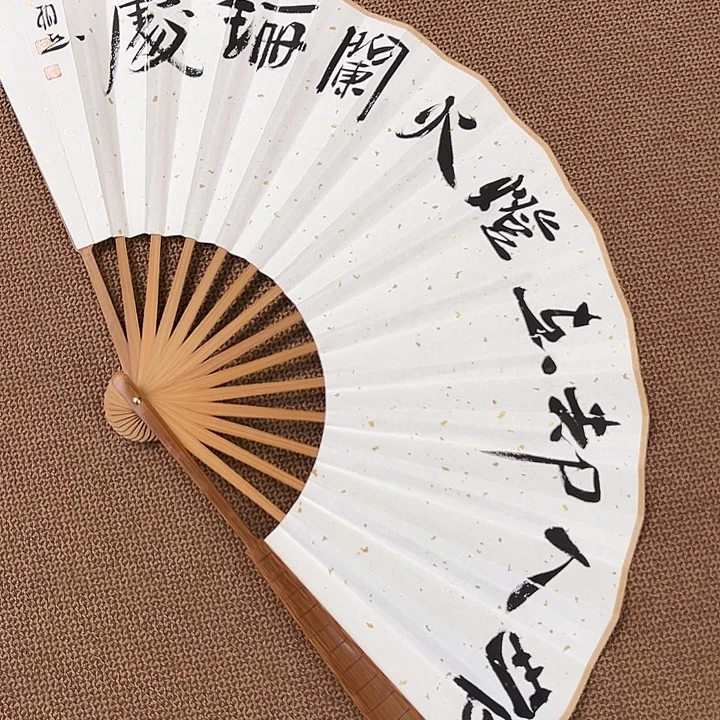 那人却在燈火闌珊處